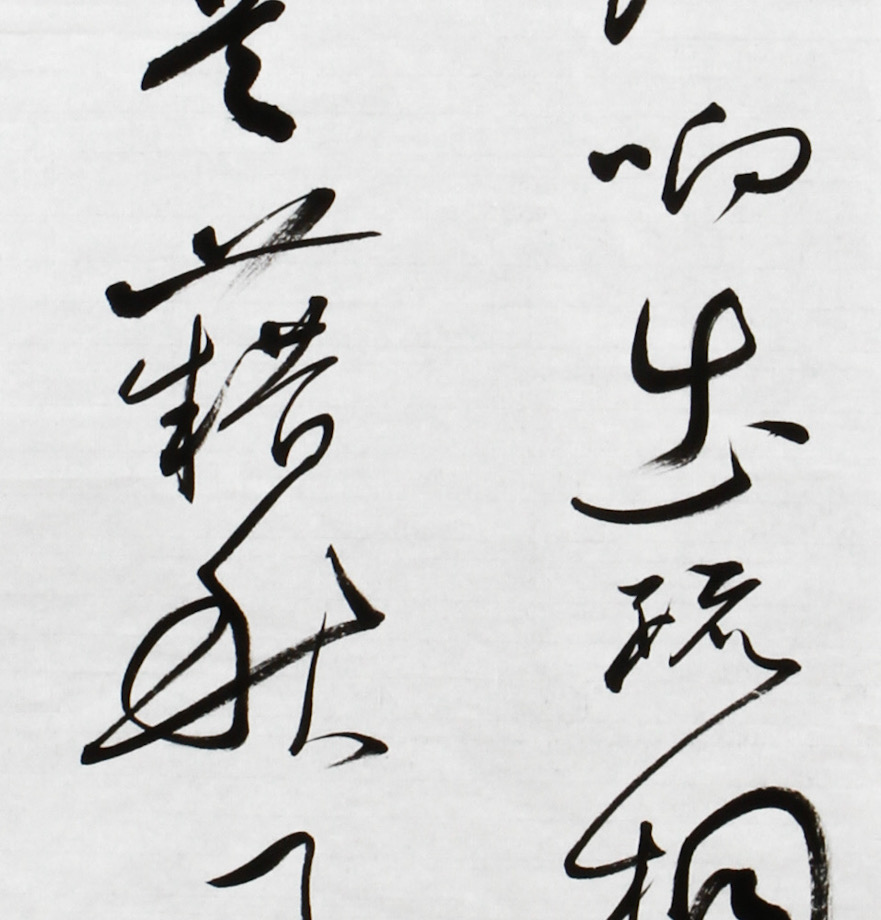 响出疏桐
是藉秋